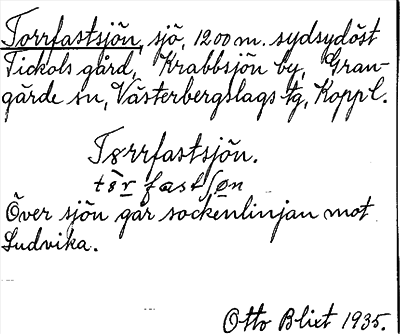 Torrfastsjön, sjö, 1200 m. sydsydöst
Tickols gård, Krabbsjön by, Gran-
gärde sn, Västerbergslags tg, Koppl.
Tørrfastsjön.
Över sjön går sockenlinjan mot
Ludvika.
Otto Blixt 1935.